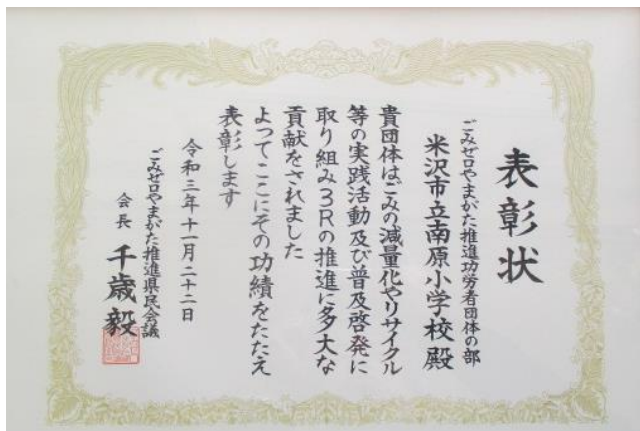 表彰状
ごみゼロやまがた推進功労者団体の部
米沢市立南原小学校殿
貴団体はごみの減量化やリサイクル
等の実践活動及び普及啓発に
取り組み3Rの推進に多大な
貢献をされました
よってここにその功績をたたえ
表彰します
令和三年十一月二十二日
ごみゼロやまがた推進県民会議
会長 千歳毅